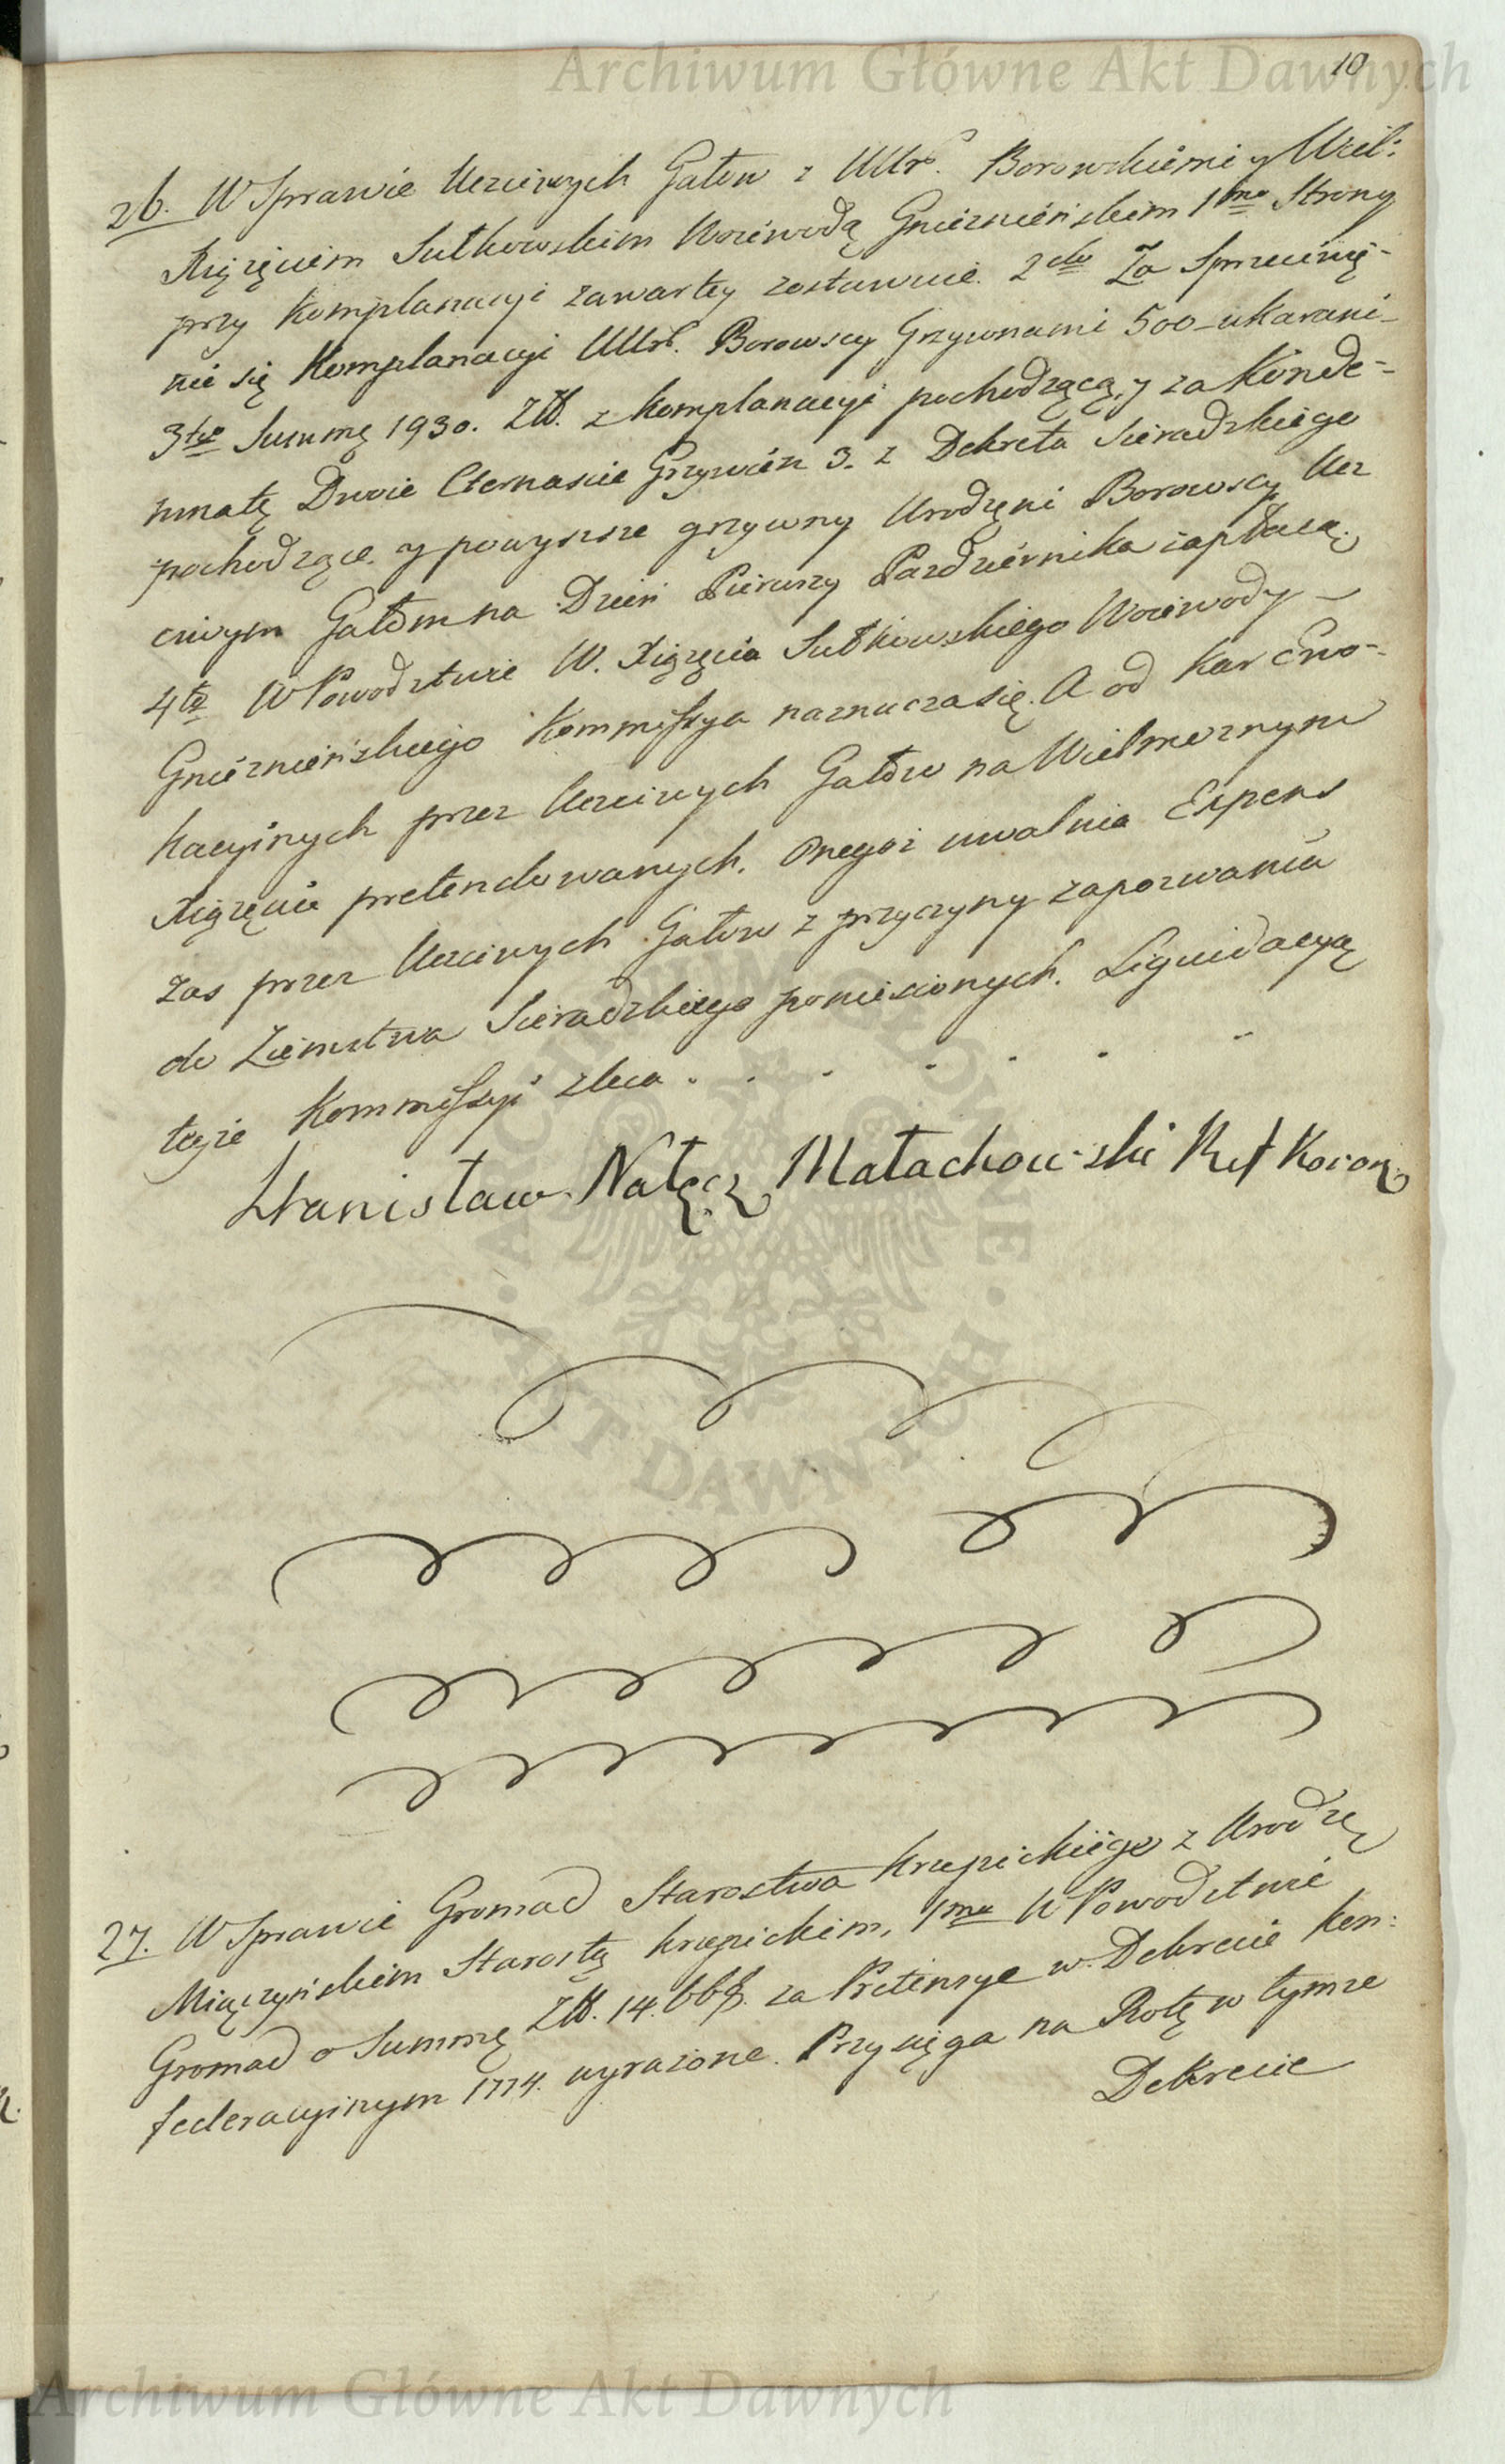 Archiwum Główne Akt Dawnych
10
26. W Sprawie Uczciwych Gałow z UUr. Borowskiemi y Wiel:
Xiążęciem Sułkowskim Woiewodą Gnieznieńskim 1mo Strony
przy Komplanacyi zawartey zostawuie. 2do Za Sprzeciwię-
nie się Komplanacyi UUr. Borowscy Grzywnami 500 ukarani-
3tio Summę 1930. Złł. z Komplanacyi pochodzącą, y za Konde-
mnatę Dwoie Czternascie Grzywien 3. z Dekretu Sieradzkiego
pochodzące. y powyzsze grzywny Urodzęni Borowscy Ucz
ciwym Gałom na Dzień Pierwszy Pazdziernika zapłacą.
4to W Powodztwie W. Xiążęcia Sułkowskiego Woiewody
Gnieznieńskiego Kommissya naznacza się. A od Kar Ewo-
kacyinych przez Uczciwych Gałow na Wielmoznym
Xiążęciu pretendowanych. Onegoz uwalnia Expens
zas przez Uczciwych Gałow z przyczyny zapozwania
do Ziemstwa Sieradzkiego poniesionych. Liquidacyą
teyze Kommissyi zleca . . . . . . .
Stanisław Nałęcz Małachowski Ref Koronż
27. W Sprawie Gromad Starostwa Krzepickiego z Urodzę
Miączyńskim Starostą Krzepickim, 1mo W Powodztwie
Gromad o Summę Złł. 14. 66 g. za Pretensye w Dekrecie Kon:
federacyinym 1774. wyrazone. Przysięga na Rotę w tymze
Dekrecie
ARCHIWUM GŁÓWNE AKT DAWNYCH
Archiwum Główne Akt Dawnych